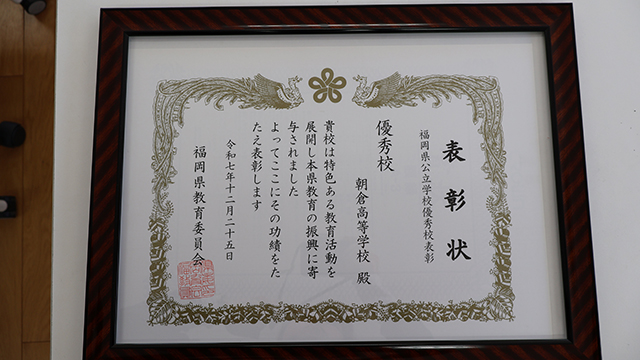 表彰状
福岡県公立学校優秀校表彰
優秀校
朝倉高等学校 殿
貴校は特色ある教育活動を
展開し本県教育の振興に寄
与されました
よってここにその功績をた
たえ表彰します
令和七年十二月二十五日
福岡県教育委員会